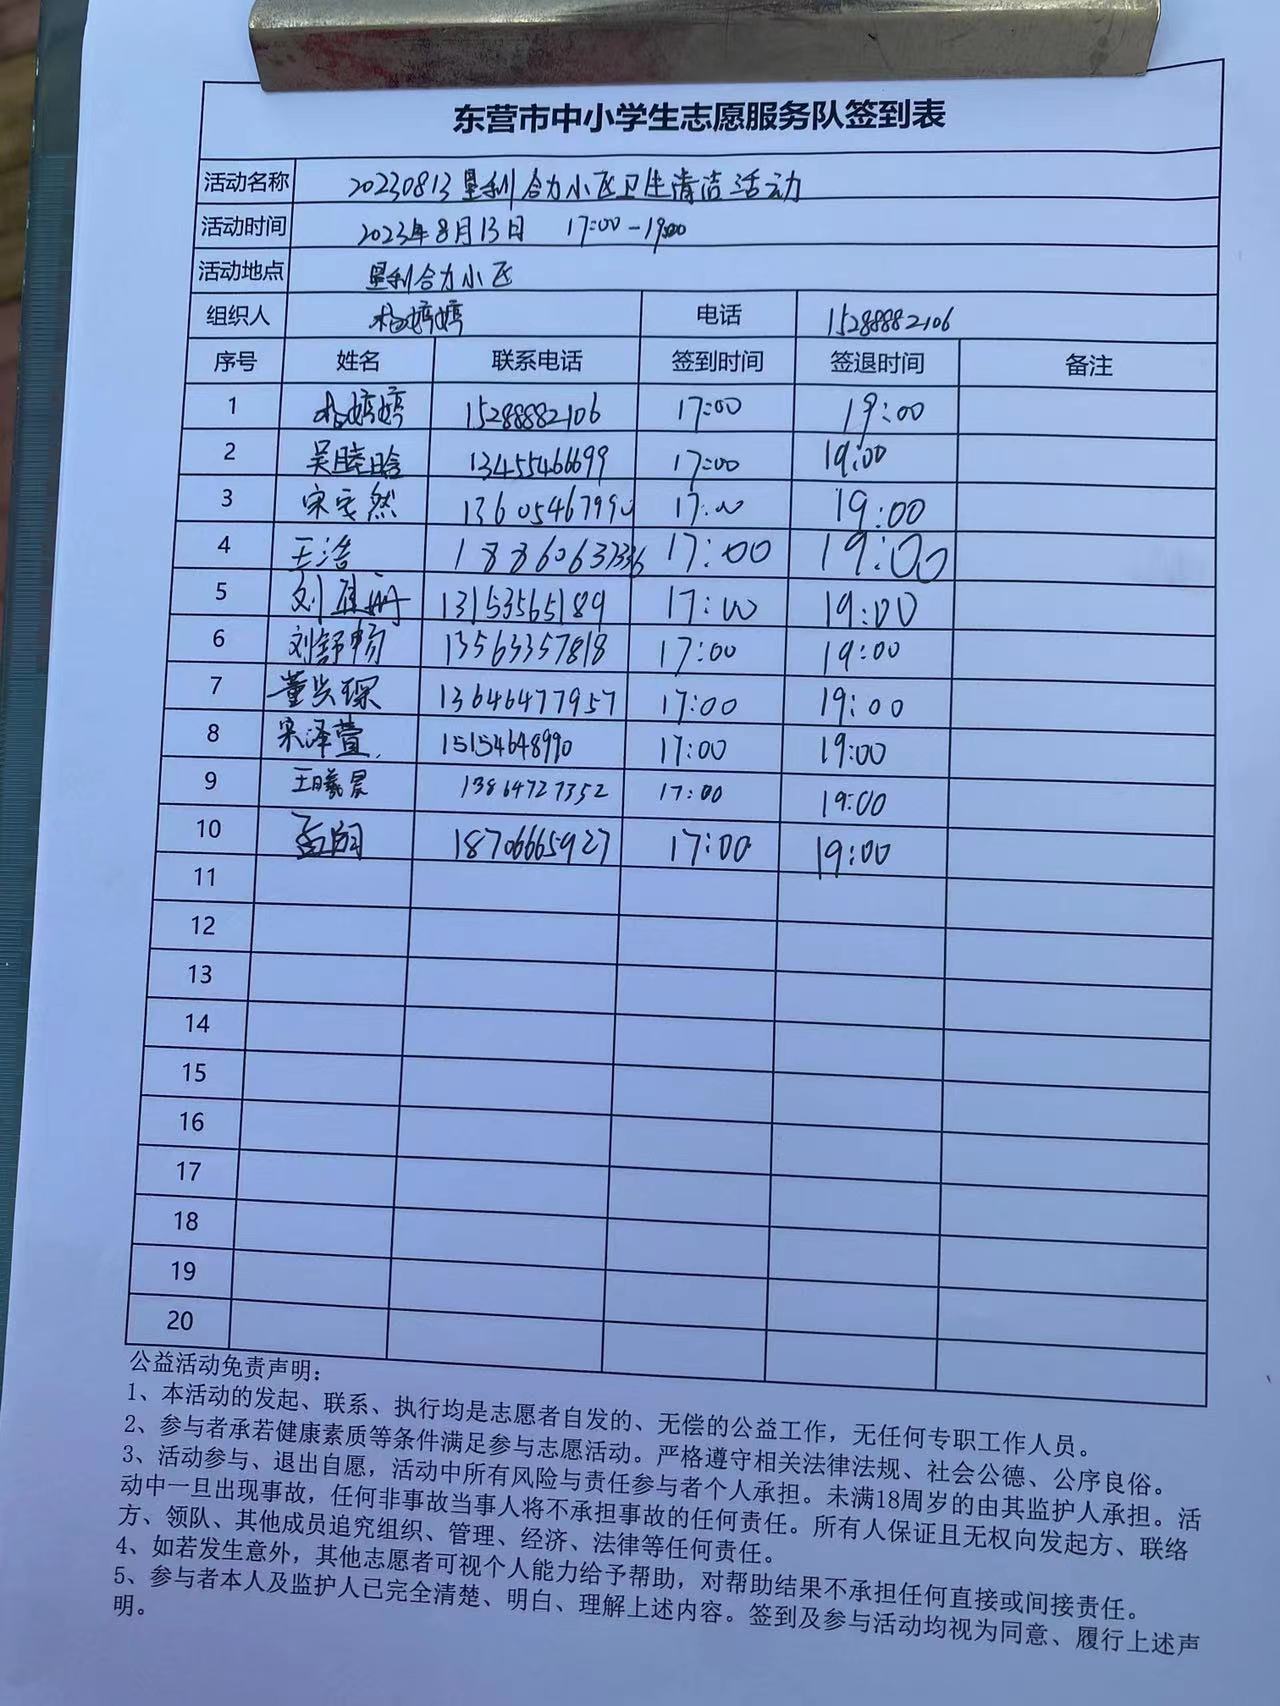 东营市中小学生志愿服务队签到表
活动名称 20230813垦利合力小飞卫生清洁活动
活动时间 2023年8月13日 17:00-19:00
活动地点 垦利合力小飞
组织人 婷婷 电话 15288882106
序号 姓名 联系电话 签到时间 签退时间 备注
1 婷婷 15288882106 17:00 19:00
2 吴睦晗 13455466699 17:00 19:00
3 宋安然 13605467990 17:00 19:00
4 王浩 17:00 19:00
5 刘 13153565189 17:00 19:00
6 刘舒畅 13563357818 17:00 19:00
7 董 琛 13646477957 17:00 19:00
8 宋泽萱 15154648990 17:00 19:00
9 王曦昊 13864727352 17:00 19:00
10 孟 18706665927 17:00 19:00
11
12
13
14
15
16
17
18
19
20
公益活动免责声明：
1、本活动的发起、联系、执行均是志愿者自发的、无偿的公益工作，无任何专职工作人员。
2、参与者承若健康素质等条件满足参与志愿活动。严格遵守相关法律法规、社会公德、公序良俗。
3、活动参与、退出自愿，活动中所有风险与责任参与者个人承担。未满18周岁的由其监护人承担。活
动中一旦出现事故，任何非事故当事人将不承担事故的任何责任。所有人保证且无权向发起方、联络
方、领队、其他成员追究组织、管理、经济、法律等任何责任。
4、如若发生意外，其他志愿者可视个人能力给予帮助，对帮助结果不承担任何直接或间接责任。
5、参与者本人及监护人已完全清楚、明白、理解上述内容。签到及参与活动均视为同意、履行上述声
明。